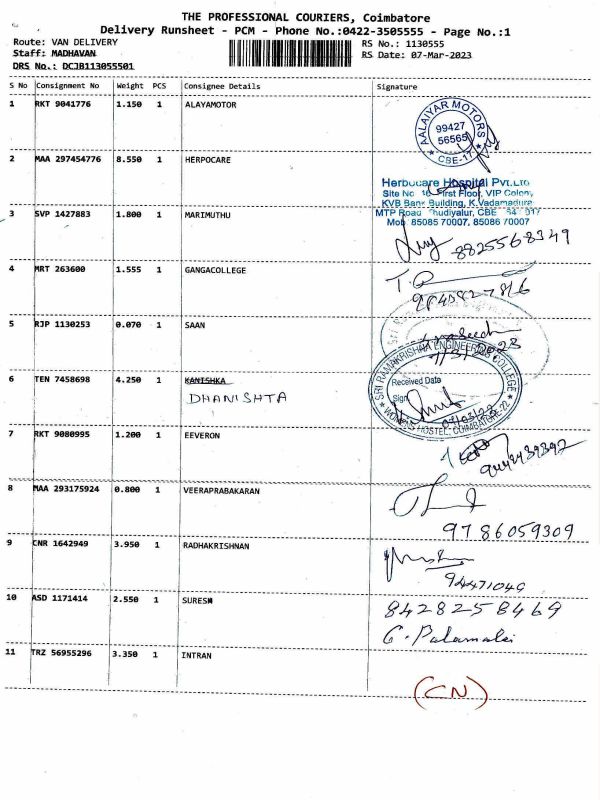 THE PROFESSIONAL COURIERS, Coimbatore
Delivery Runsheet - PCM - Phone No.:0422-3505555 - Page No.:1
Route: VAN DELIVERY
RS No.: 1130555
Staff: MADHAVAN
RS Date: 07-Mar-2023
DRS No.: DCJB113055501
S No Consignment No Weight PCS Consignee Details Signature
1 RKT 9041776 1.150 1 ALAYAMOTOR
AALAIYAR MOTORS
99427
56565
★ CBE-17 ★
2 MAA 297454776 8.550 1 HERPOCARE
Herbocare Hospital Pvt.Ltd
Site No First Floor, VIP Colony
KVB Bank Building, K.Vadamadurai
MTP Road CBE
Mob 85085 70007, 85086 70007
3 SVP 1427883 1.800 1 MARIMUTHU
8825568349
4 MRT 263600 1.555 1 GANGACOLLEGE
5 RJP 1130253 0.070 1 SAAN
6 TEN 7458698 4.250 1 KANISHKA
DHANISHTA
SRI RAMAKRISHNA ENGINEERING COLLEGE
Received Date
Sign
WOMENS HOSTEL, COIMBATORE-22
7 RKT 9080995 1.200 1 EEVERON
8 MAA 293175924 0.800 1 VEERAPRABAKARAN
9786059309
9 CNR 1642949 3.950 1 RADHAKRISHNAN
10 ASD 1171414 2.550 1 SURESH
8428258469
G. Palamalai
11 TRZ 56955296 3.350 1 INTRAN
(CN)